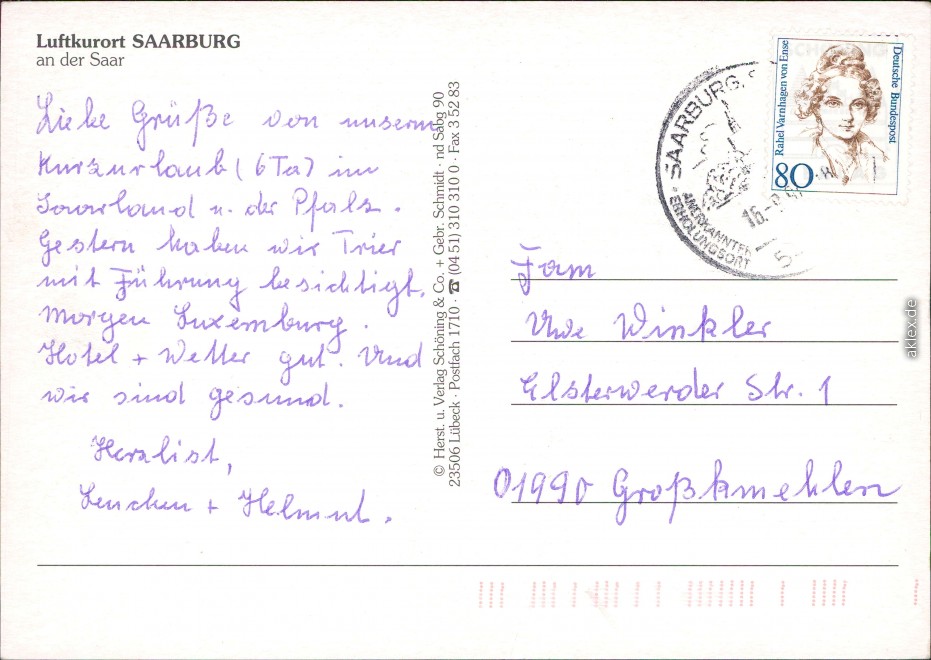 Luftkurort SAARBURG
an der Saar
Liebe Grüße von unserm
Kurzurlaub (6 Ta) im
Saarland u. der Pfalz.
Gestern haben wir Trier
mit Führung besichtigt.
Morgen Luxemburg.
Hotel + Wetter gut. Und
wir sind gesund.
Herzlist,
Lenchen + Helmut.
© Herst. u. Verlag Schöning & Co. + Gebr. Schmidt · nd Sabg 90
23506 Lübeck · Postfach 1710 · ☎ (04 51) 310 310 0 · Fax 3 52 83
SAARBURG,
ANERKANNTER
ERHOLUNGSORT
16.
Rahel Varnhagen von Ense
Deutsche Bundespost
80
Fam
Uwe Winkler
Elsterwerder Str. 1
01990 Großkmehlen
aklex.de